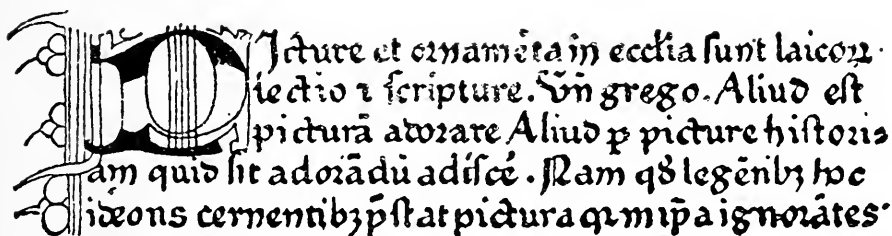 PIcture et ornamēta in ecclīa sunt laicoꝝ·
lectio ⁊ scripture. Vn̄ grego. Aliud est
picturā adorare Aliud ꝑ picture histori⸗
am quid sit adorādū adiscē. Nam qd̕ legētibꝫ hoc
ideons cernentibꝫ p̄stat pictura qꝛ in ip̄a ignorātes·